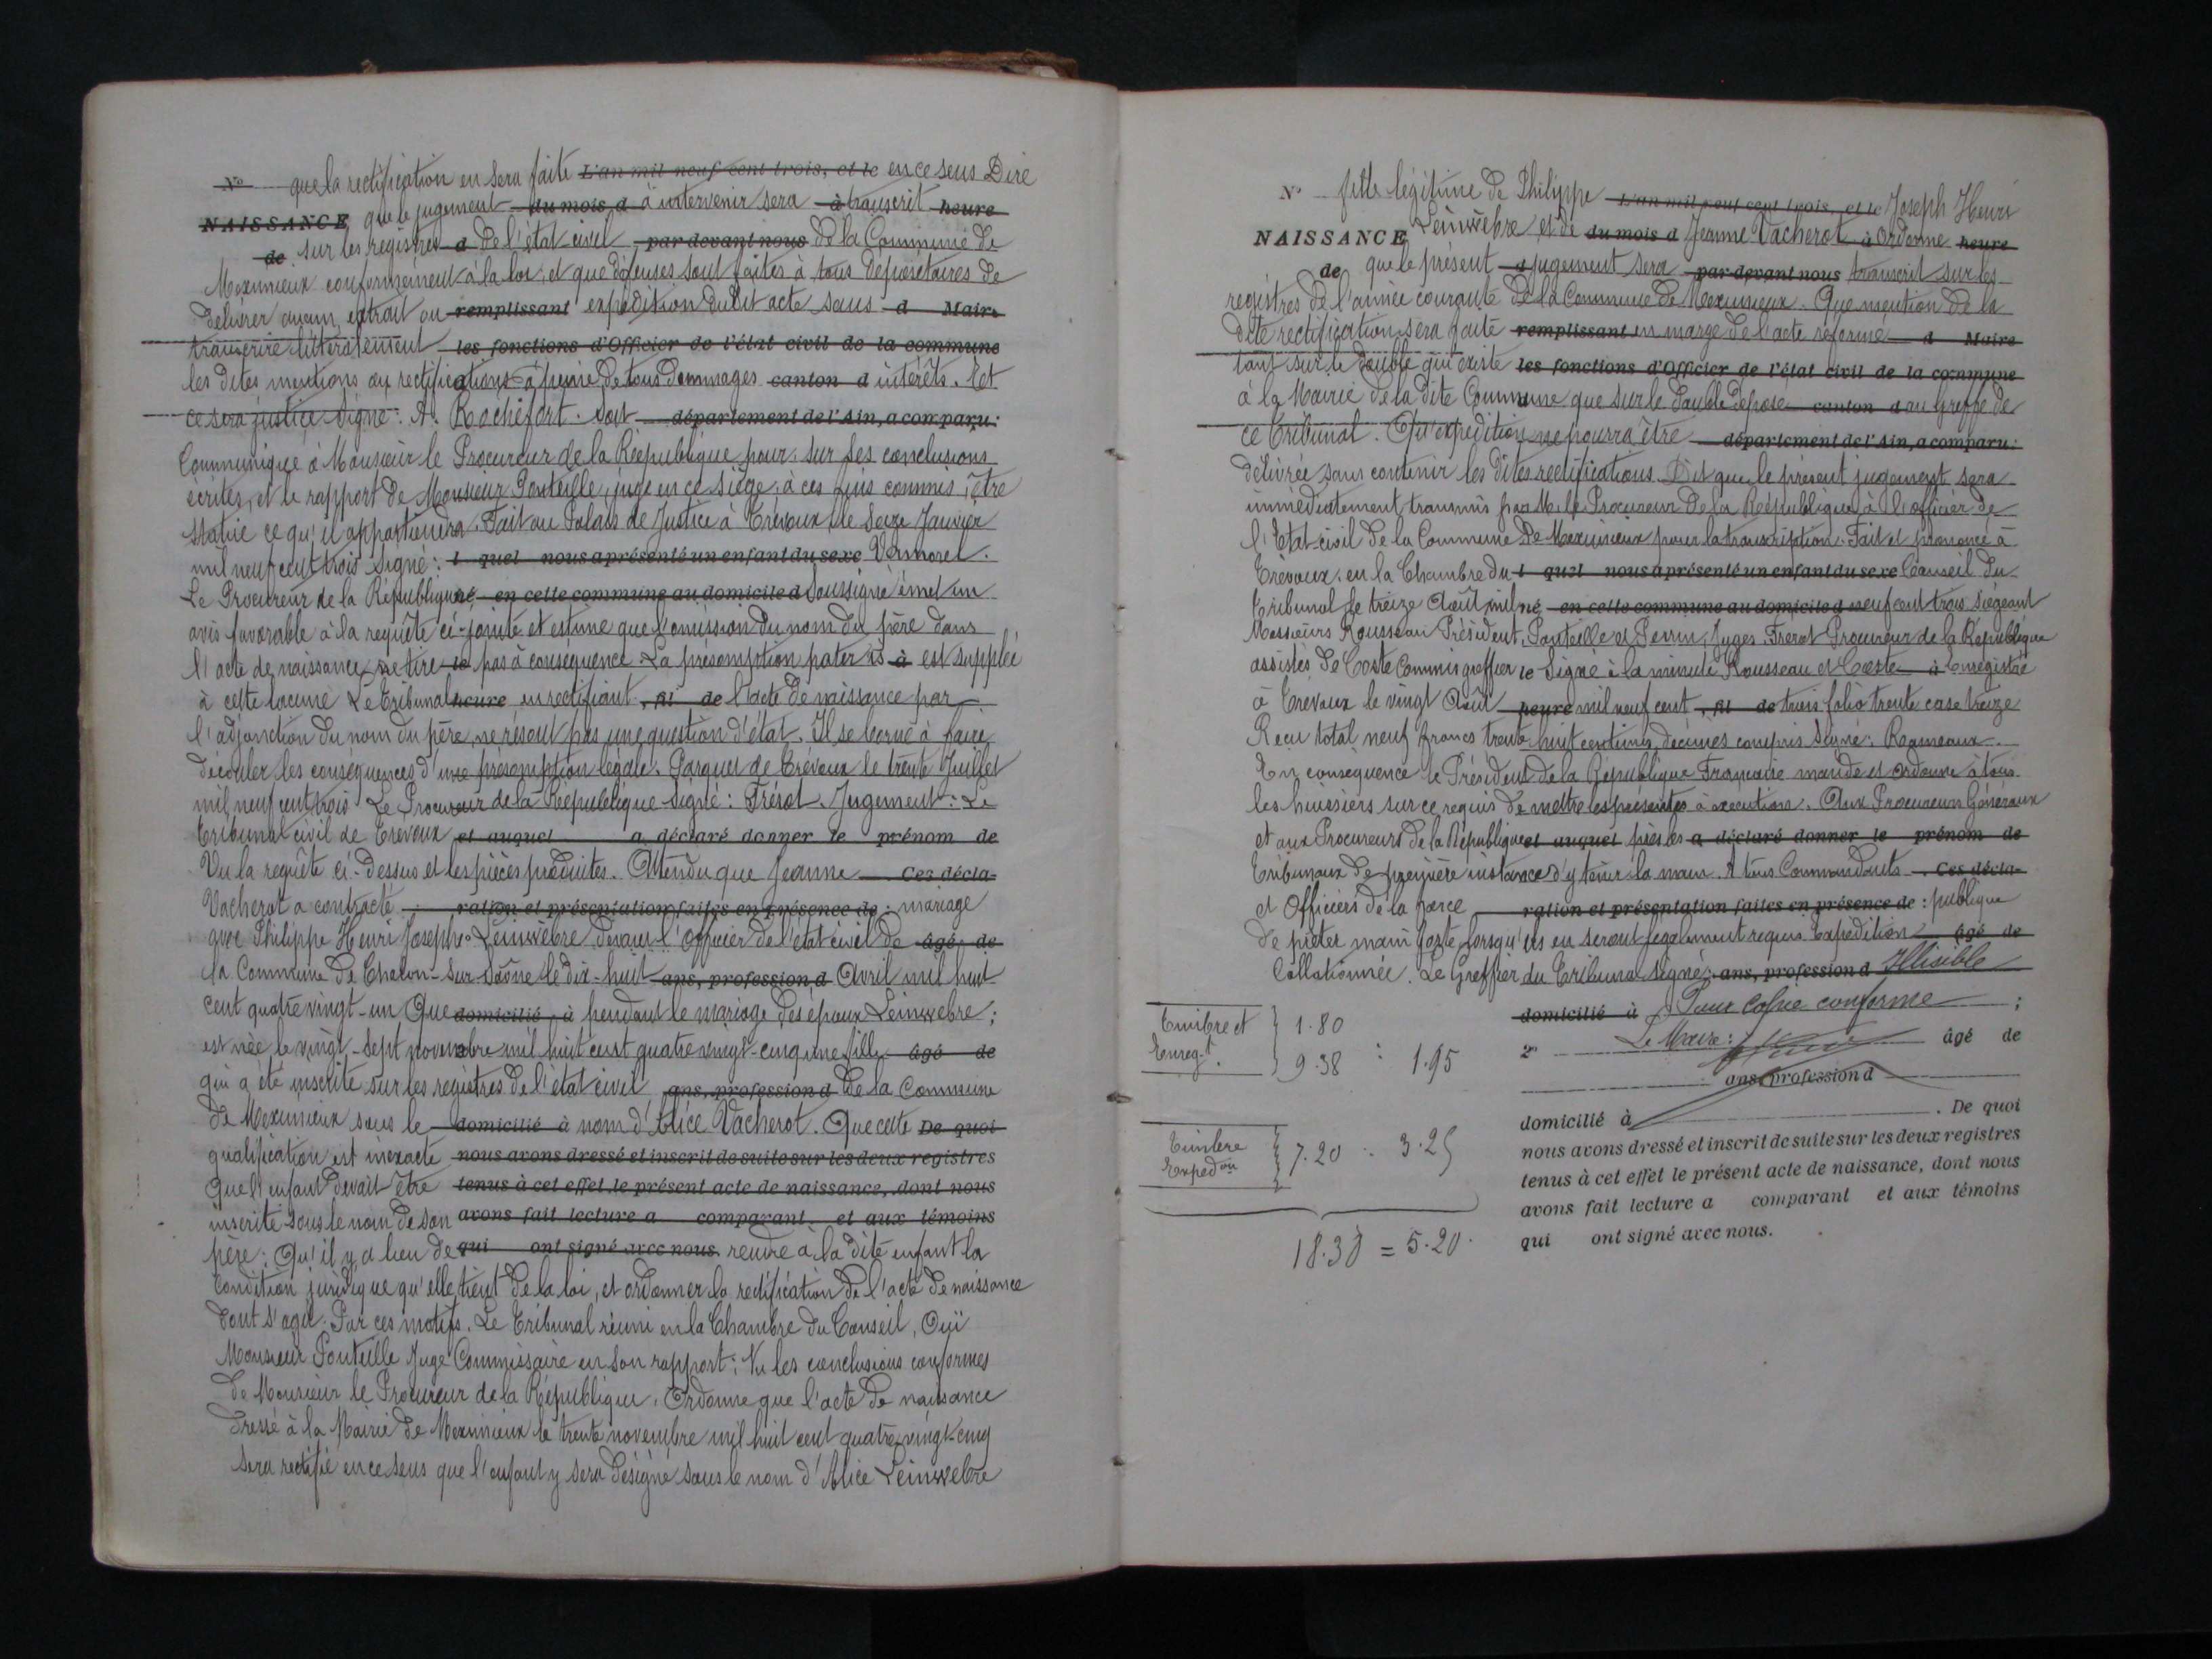 No que la rectification en sera faite L'an mil neuf cent trois, et le en ce sens Dire
NAISSANCE que le jugement du mois d à intervenir sera à transcrit heure
de sur les registres d de l'état-civil par devant nous de la Commune de
Meximieux conformément à la loi, et que défenses sont faites à tous dépositaires de
délivrer aucun extrait ou remplissant expédition dudit acte sans d Maire
transcrire littéralement les fonctions d'Officier de l'état civil de la commune
les dites mentions ou rectifications à peine de tous dommages canton d intérêts. Et
ce sera justice Signé: A. Rochefort. Soit département de l'Ain, a comparu:
Communiqué à Monsieur le Procureur de la République pour, sur ses conclusions
écrites, et le rapport de Monsieur Ponteille, juge en ce siège, à ces fins commis, être
statué ce qu'il appartiendra. Fait au Palais de Justice à Trévoux, le Seize Janvier
mil neuf cent trois Signé: l quel nous a présenté un enfant du sexe Vermorel.
Le Procureur de la République né en cette commune au domicile d Soussigné émet un
avis favorable à la requête ci-jointe et estime que l'omission du nom du père dans
l'acte de naissance ne tire le pas à conséquence. La présomption pater is à est supplée
à cette lacune Le Tribunal heure en rectifiant , fil de l'acte de naissance par
l'adjonction du nom du père, ne résout pas une question d'état. Il se borne à faire
découler les conséquences d'une présomption légale. Parquet de Trévoux le trente Juillet
mil neuf cent trois Le Procureur de la République signé: Frérot. Jugement: Le
Tribunal civil de Trévoux et auquel a déclaré donner le prénom de
Vu la requête ci-dessus et les pièces produites. Attendu que Jeanne Ces décla-
Vacherot a contracté ration et présentation faites en présence de: mariage
avec Philippe Henri Joseph Leinwèbre, devant l'officier de l'état civil de âgé de
la Commune de Chalon-sur-Saône le dix-huit ans, profession d Avril mil huit
cent quatre vingt-un Que domicilié à pendant le mariage des époux Leinwebre;
est née le vingt-sept novembre mil huit cent quatre vingt-cinq une fille âgé de
qui a été inscrite sur les registres de l'état civil ans, profession d de la Commune
de Meximieux sous le domicilié à nom d'Alice Vacherot. Que cette De quoi
qualification est inexacte nous avons dressé et inscrit de suite sur les deux registres
Que l'enfant devait être tenus à cet effet le présent acte de naissance, dont nous
inscrite sous le nom de son avons fait lecture a comparant et aux témoins
père: Qu'il y a lieu de qui ont signé avec nous. rendre à la dite enfant la
condition juridique qu'elle tient de la loi, et ordonner la rectification de l'acte de naissance
dont s'agit. Par ces motifs. Le Tribunal réuni en la Chambre du Conseil, Ouï
Monsieur Ponteille Juge Commissaire en son rapport; Vu les conclusions conformes
de Monsieur le Procureur de la République, Ordonne que l'acte de naissance
dressé à la Mairie de Meximieux le trente novembre mil huit cent quatre vingt-cinq
sera rectifié en ce sens que l'enfant y sera désigné sous le nom d'Alice Leinwebre
No fille légitime de Philippe L'an mil neuf cent trois, et le Joseph Henri
NAISSANCE Leinwèbre et de du mois d Jeanne Vacherot à Ordonne heure
de que le présent d jugement sera par devant nous transcrit sur les
registres de l'année courante de la Commune de Meximieux. Que mention de la
dite rectification sera faite remplissant en marge de l'acte réformé d Maire
tant sur le double qui existe les fonctions d'Officier de l'état civil de la commune
à la Mairie de la dite Commune que sur le double déposé canton d au Greffe de
ce Tribunal. Qu'expédition ne pourra être département de l'Ain, a comparu:
délivrée sans contenir les dites rectifications. Dit que le présent jugement sera
immédiatement transmis par M. le Procureur de la République, à l'officier de
l'Etat-civil de la Commune de Meximieux pour la transcription. Fait et prononcé à
Trévoux, en la Chambre du l quel nous a présenté un enfant du sexe Conseil du
Tribunal le treize Août mil né en cette commune au domicile d neuf cent trois Siégeant
Messieurs Rousseau Président, Ponteille et Perrin, Juges. Frérot Procureur de la République
assistés de Coste Commis greffier le Signé à la minute Rousseau et Coste à Enregistré
à Trévoux le vingt Août heure mil neuf cent , fil de trois folio trente case treize
Reçu total neuf francs trente huit centimes, décimes compris Signé: Rameaux.
En conséquence le Président de la République Française mande et ordonne à tous
les huissiers sur ce requis de mettre les présentes à exécution. Aux Procureurs Généraux
et aux Procureurs de la République et auquel près les a déclaré donner le prénom de
Tribunaux de première instance d'y tenir la main. A tous Commandants Ces décla-
et Officiers de la force ration et présentation faites en présence de: publique
de prêter main forte lorsqu'ils en seront légalement requis Expédition âgé de
Collationnée. Le Greffier du Tribunal signé: ans, profession d Illisible
domicilié à Pour Copie conforme ;
2° Le Maire: âgé de
ans, profession d
domicilié à . De quoi
nous avons dressé et inscrit de suite sur les deux registres
tenus à cet effet le présent acte de naissance, dont nous
avons fait lecture a comparant et aux témoins
qui ont signé avec nous.
Timbre et 1.80
Enreg.t 9.38 : 1.95
Timbre
Expedon 7.20 : 3.25
18.38 = 5.20.